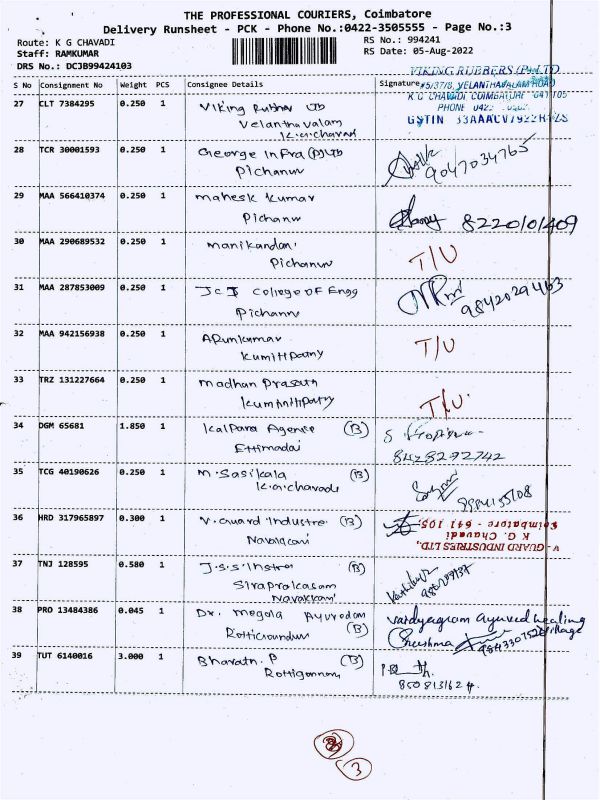 THE PROFESSIONAL COURIERS, Coimbatore
Delivery Runsheet - PCK - Phone No.:0422-3505555 - Page No.:3
Route: K G CHAVADI
RS No.: 994241
Staff: RAMKUMAR
RS Date: 05-Aug-2022
DRS No.: DCJB99424103
VIKING RUBBERS (P) LTD
S No Consignment No Weight PCS Consignee Details Signature
#5/37/8, VELANTHAVALAM ROAD
K G CHAVADI COIMBATORE 641 105
PHONE 0422
GSTIN 33AAACV7922R1ZS
27 CLT 7384295 0.250 1 Viking Rubber Ltd
Velanthavalam
K.G.chavadi
28 TCR 30001593 0.250 1 George infra (P) Ltd
Pichanur
9047034765
29 MAA 566410374 0.250 1 mahesk kumar
Pichanur
8220101409
30 MAA 290689532 0.250 1 manikandan
Pichanur
T/U
31 MAA 287853009 0.250 1 JCT College OF Engg
Pichanur
9842029463
32 MAA 942156938 0.250 1 Arunkumar
T/U
33 TRZ 131227664 0.250 1 madhan Prasath
T/U
34 DGM 65681 1.850 1 Kalpana Agence (B)
Ettimadai
8428292742
35 TCG 40190626 0.250 1 M. Sasikala (B)
K.G.chavadi
36 HRD 317965897 0.300 1 V. Guard Industre (B)
V-GUARD INDUSTRIES LTD.,
K. G. Chavadi
Coimbatore - 641 105
37 TNJ 128595 0.580 1 J.S.S. Instro (B)
Navakkani
38 PRO 13484386 0.045 1 Dr. megola Ayurodam
(B)
vaidyagram Ayurved healing
village
39 TUT 6140016 3.000 1 Bharath. P (B)
8508131624.
3